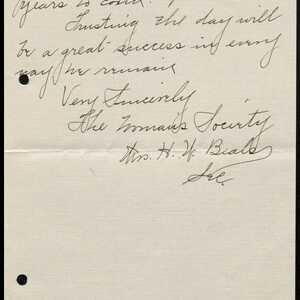 years to come.
Trusting the day will
be a great success in every
way we remain
Very Sincerely
The Womans Society
Mrs. H. W. Beals
Sec.